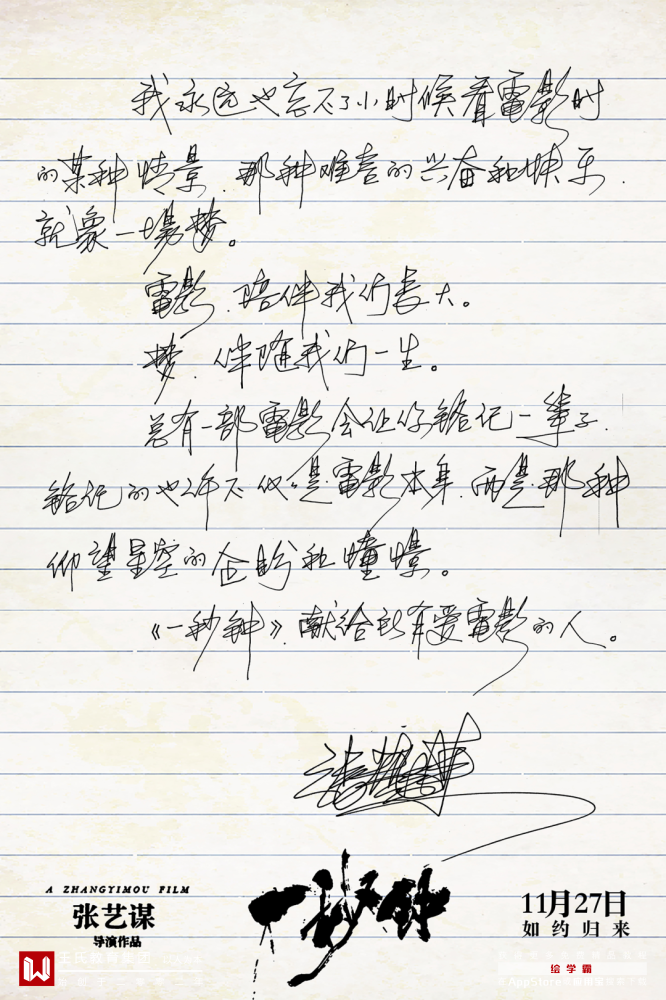 我永远也忘不了小时候看電影时
的某种情景，那种难言的兴奋和快乐，
就象一場梦。
電影，陪伴我们長大。
梦，伴随我们一生。
总有一部電影会让你铭记一輩子，
铭记的也许不仅仅是電影本身，而是那种
仰望星空的企盼和憧憬。
《一秒钟》，献给所有爱電影的人。
A ZHANGYIMOU FILM
张艺谋
导演作品
一秒钟
11月27日
如约归来
王氏教育集团
绘学霸